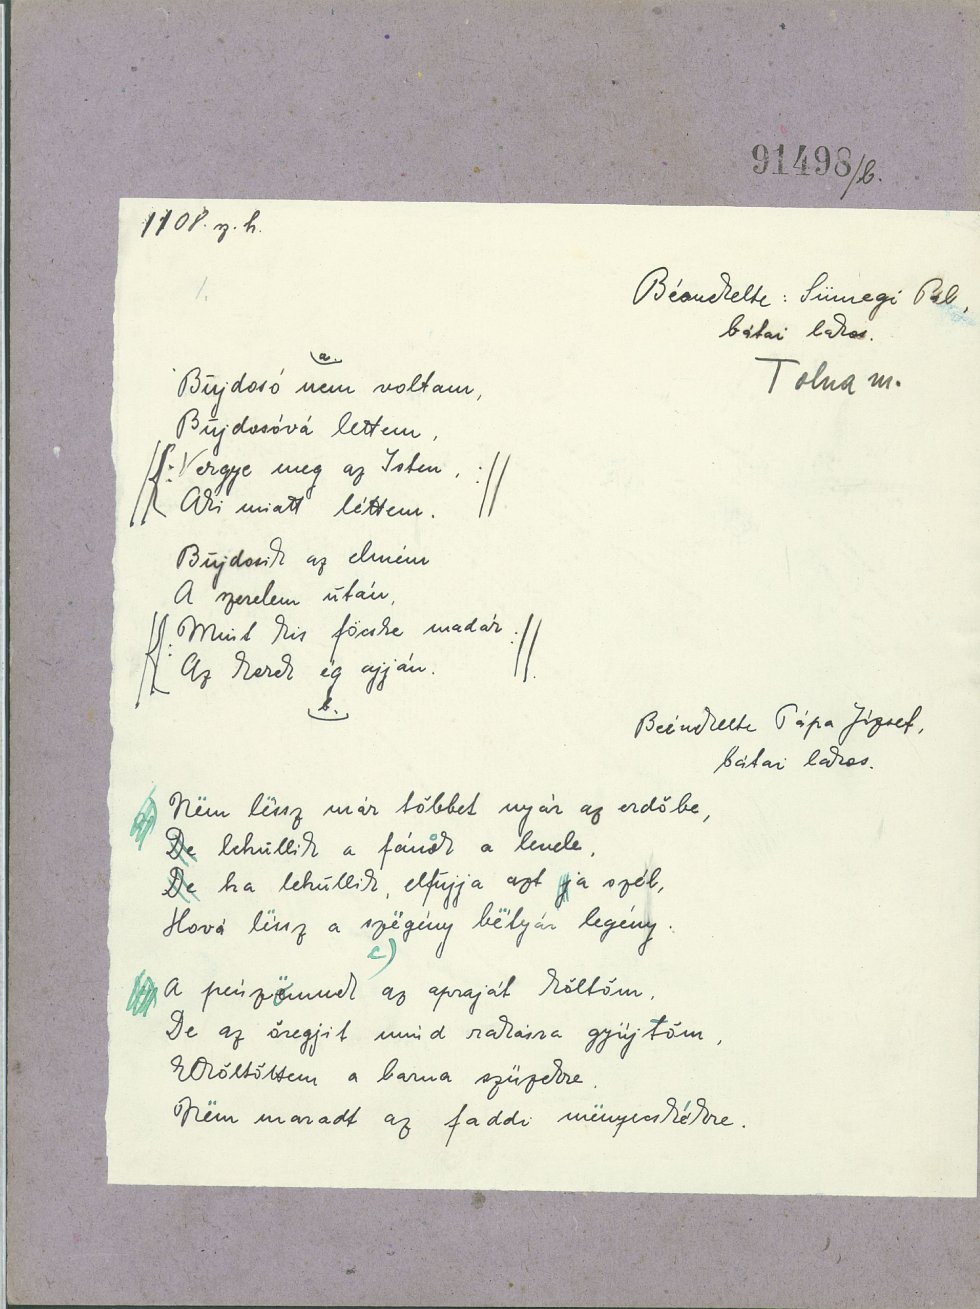 91498/b.
1108. sz. h.
1.
Béoneklte: Sümegi Pál,
bátai lakos.
Tolna m.
a.
Bujdosó nem voltam,
Bujdosóvá lettem,
//: Vergye meg az Isten, ://
Aki miatt léttem.
Bujdosik az elmém
A szerelem után,
//: Mint kis föcske madár ://
Az kerek ég ajján.
b.
Beéneklte Pápa József,
bátai lakos.
a) Nëm lëssz már tőbbet nyár az erdőbe,
De lehullik a fának a levele,
De ha lehullik, elfujja azt ja szél,
Hová lëssz a szëgény bëtyár legény.
c)
b) A pénzömnek az apraját kőltőm,
De az őregjit mind rakásra gyüjtőm,
Rákőltőttem a barna szüzekre,
Nëm maradt az faddi mënyecskékre.